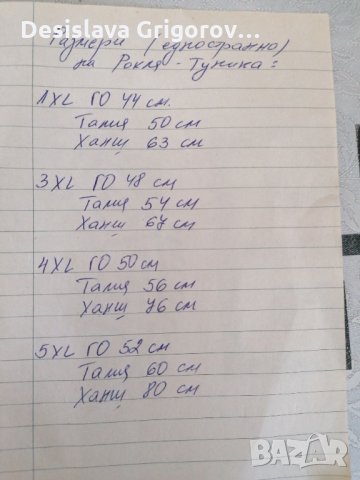 Desislava Grigorov...
Размери (едностранно)
на Рокля - Туника:
1XL ГО 44 см.
Талия 50 см
Ханш 63 см
3XL ГО 48 см
Талия 54 см
Ханш 67 см
4XL ГО 50 см
Талия 56 см
Ханш 76 см
5XL ГО 52 см
Талия 60 см
Ханш 80 см
BAZAR